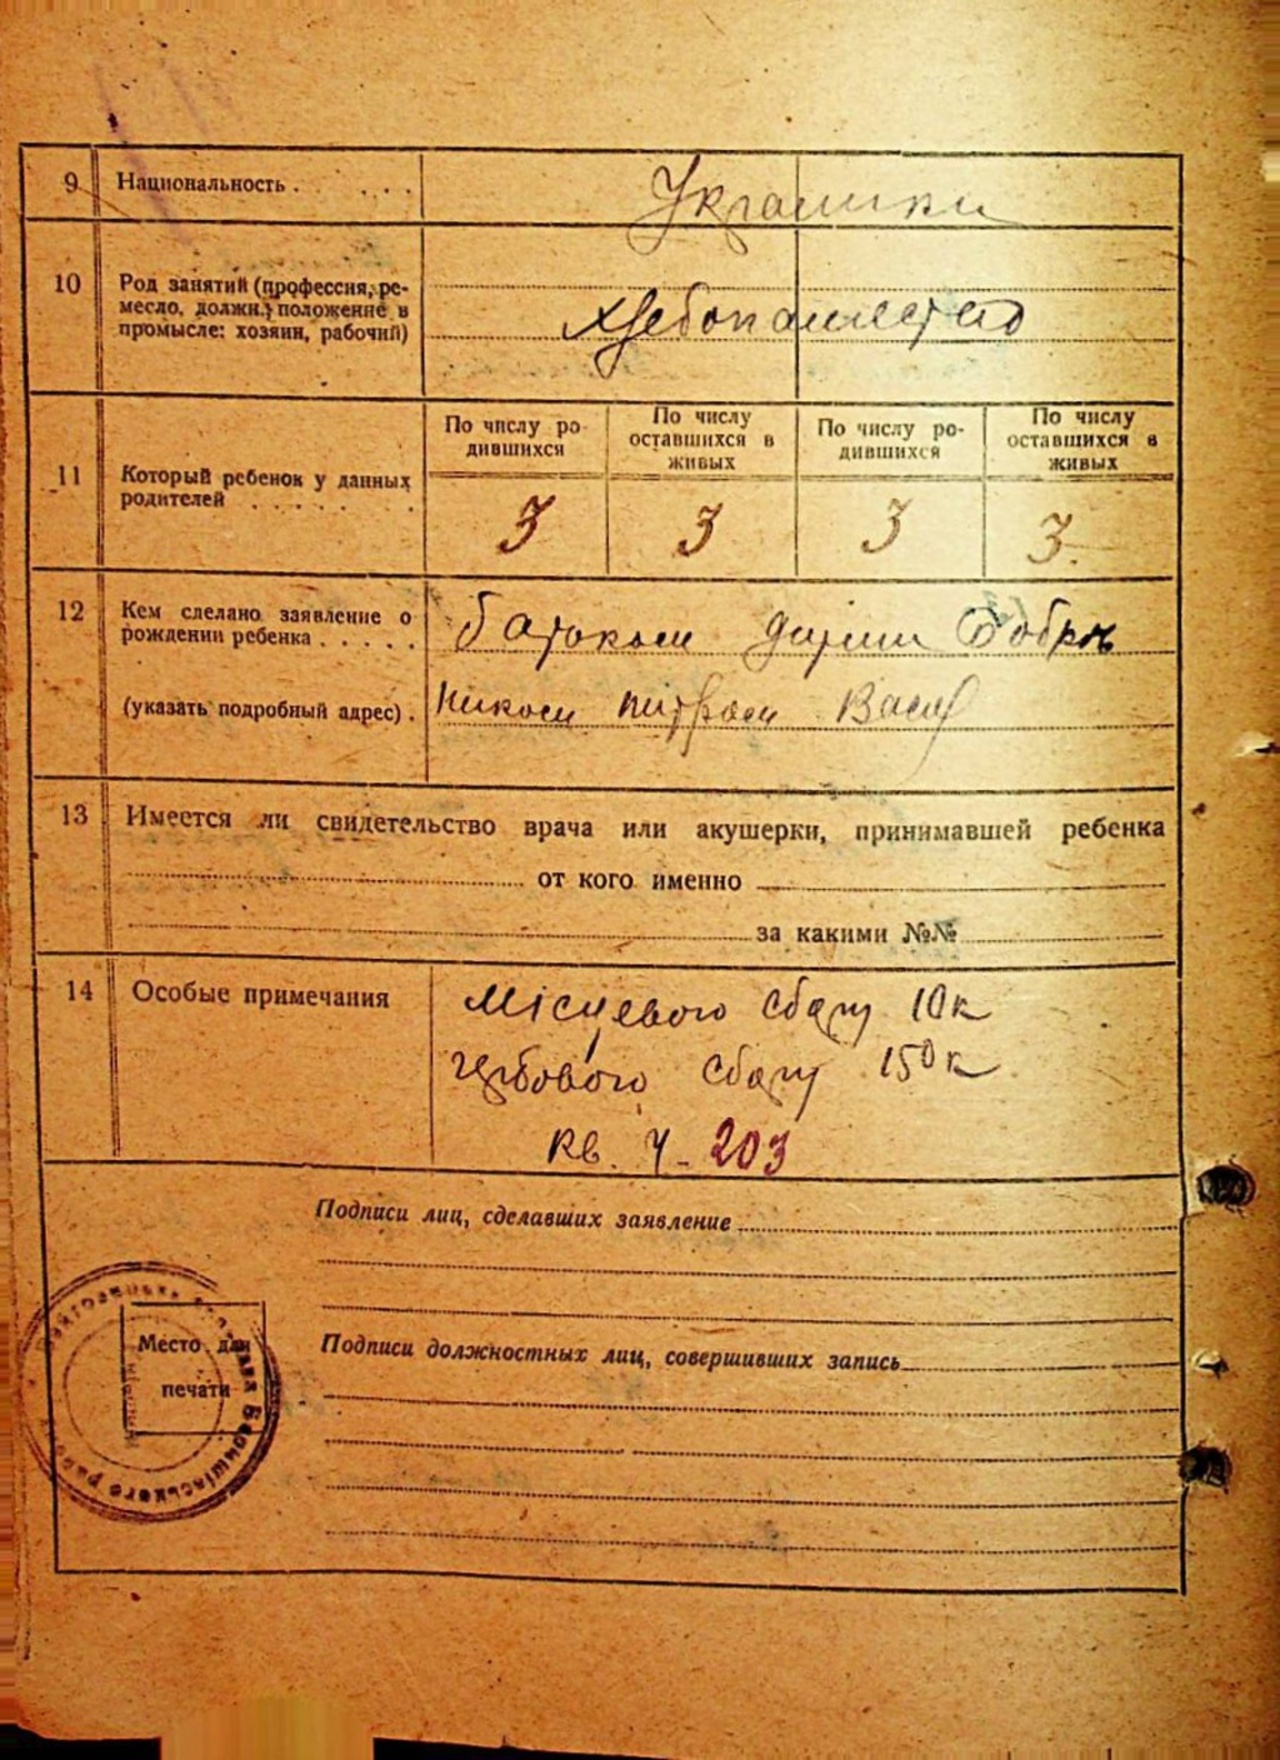 9 Национальность . . . . .
Украинки
10 Род занятий (профессия, ре-
месло, должн.) положение в
промысле: хозяин, рабочий)
Хлебопашество
По числу ро-
дившихся
По числу
оставшихся в
живых
По числу ро-
дившихся
По числу
оставшихся в
живых
11 Который ребенок у данных
родителей . . . . . .
3 3 3 3
12 Кем сделано заявление о
рождении ребенка . . . . .
батьком дитини Бобрв
(указать подробный адрес) .
Никоном
13 Имеется ли свидетельство врача или акушерки, принимавшей ребенка
от кого именно
за какими №№
14 Особые примечания
Місцевого сбору 10к
гербового сбору 150к
кв. Ч - 203
Подписи лиц, сделавших заявление
Место для
печати
Подписи должностных лиц, совершивших запись